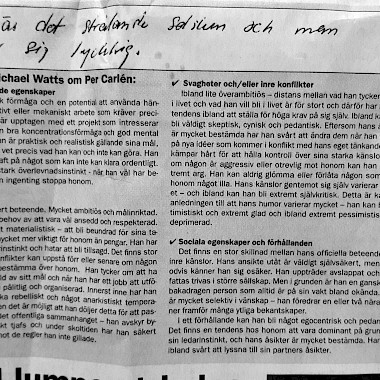 är det strålande solsken och man
sig lycklig.
ichael Watts om Per Carlén:
de egenskaper
k förmåga och en potential att använda hän-
tivt eller mekaniskt arbete som kräver preci-
är upptagen med ett projekt som intresserar
n bra koncentrationsförmåga och god mental
n är praktisk och realistisk gällande sina mål,
vet precis vad han kan och inte kan göra. Han
aft på något som kan inte kan klara ordentligt.
stark överlevnadsinstinkt - när han väl har be-
n ingenting stoppa honom.
ert beteende. Mycket ambitiös och målinriktad.
behov av att vara väl ansedd och respekterad.
t materialistisk – att bli beundrad för sina ta-
ycket mer viktigt för honom än pengar. Han har
instinkt och hatar att bli tillsagd. Det finns stor
nflikter kan uppstå för eller senare om någon
bestämma över honom. Han tycker om att ha
ld av sitt mål och när han har ett jobb att utfö-
pålitlig och organiserad. Innerst inne har han
ka rebelliskt och något anarkistiskt tempera-
n det är möjligt att han döljer detta för att pas-
det offentliga sammanhanget – han avskyr by-
kt tjafs och under skoltiden har han säkert
mot de regler han inte gillade.
✔ Svagheter och/eller inre konflikter
Ibland lite överambitiös – distans mellan vad han tycker
i livet och vad han vill bli i livet är för stort och därför har
tendens ibland att ställa för höga krav på sig själv. Ibland k
bli väldigt skeptisk, cynisk och pedantisk. Eftersom hans å
är mycket bestämda har han svårt att ändra dem när han
på nya idéer som kommer i konflikt med hans eget tänkande
kämpar hårt för att hålla kontroll över sina starka känslor
om någon är aggressiv eller otrevlig mot honom kan han
tremt arg. Han kan aldrig glömma eller förlåta någon som
honom något illa. Hans känslor gentemot sig själv varierar
et – och ibland kan han bli extremt självkritisk. Detta är ka
anledningen till att hans humör varierar mycket – han kan
timistiskt och extremt glad och ibland extremt pessimistis
deprimerad.
✔ Sociala egenskaper och förhållanden
Det finns en stor skillnad mellan hans officiella beteende
inre känslor. Hans ansikte utåt är väldigt självsäkert, men
odvis känner han sig osäker. Han uppträder avslappat och
fattas trivas i större sällskap. Men i grunden är han en gansk
bakadragen person som alltid är på sin vakt bland okända.
är mycket selektiv i vänskap – han föredrar en eller två nära
ner framför många ytliga bekantskaper.
I ett förhållande kan han bli något egocentrisk och pedan
Det finns en tendens hos honom att vara dominant på grun
sin ledarinstinkt, och hans åsikter är mycket bestämda. Han
ibland svårt att lyssna till sin partners åsikter.